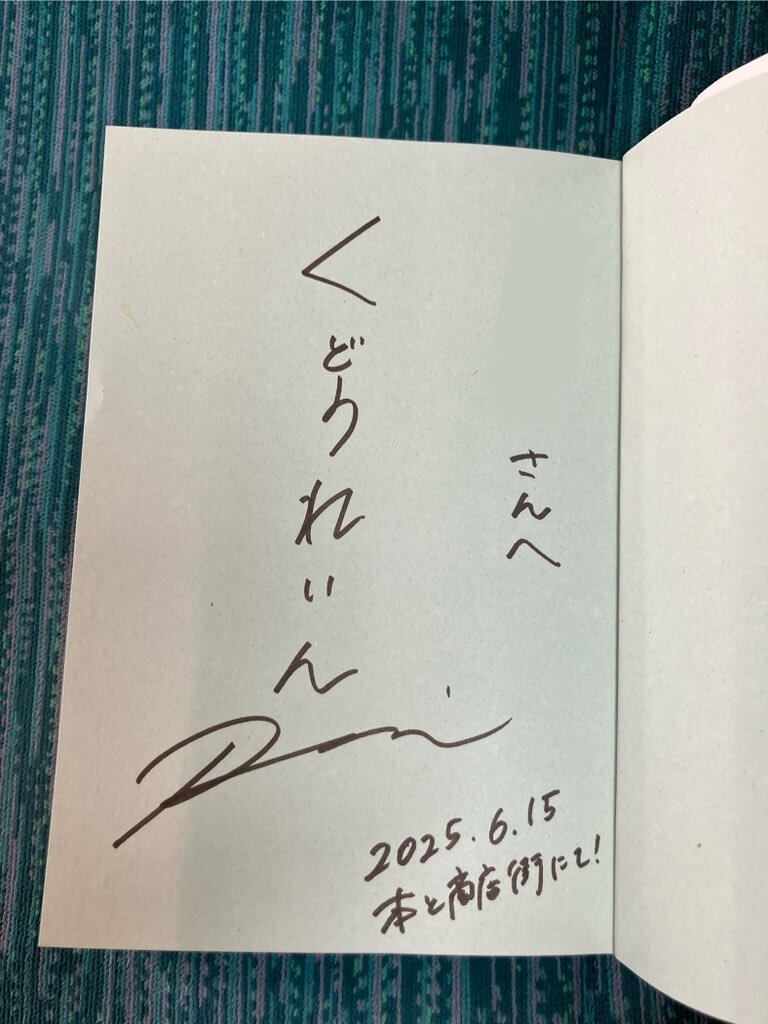 さんへ
くどうれいん
Rei
2025.6.15
本と商店街にて!